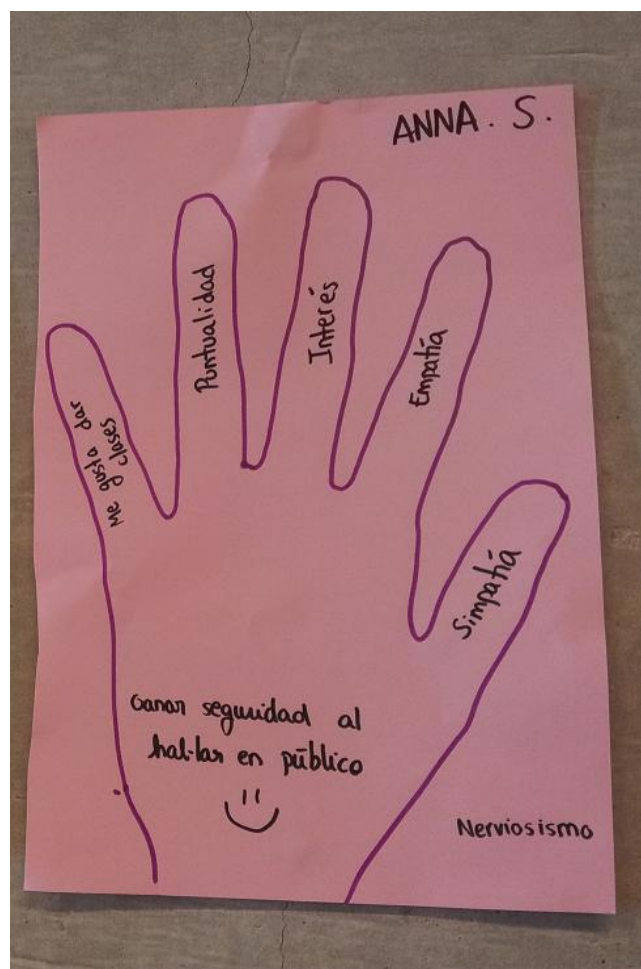 ANNA. S.
Me gusta dar
clases
Puntualidad
Interés
Empatía
Simpatía
Ganar seguridad al
hablar en público
Nerviosismo